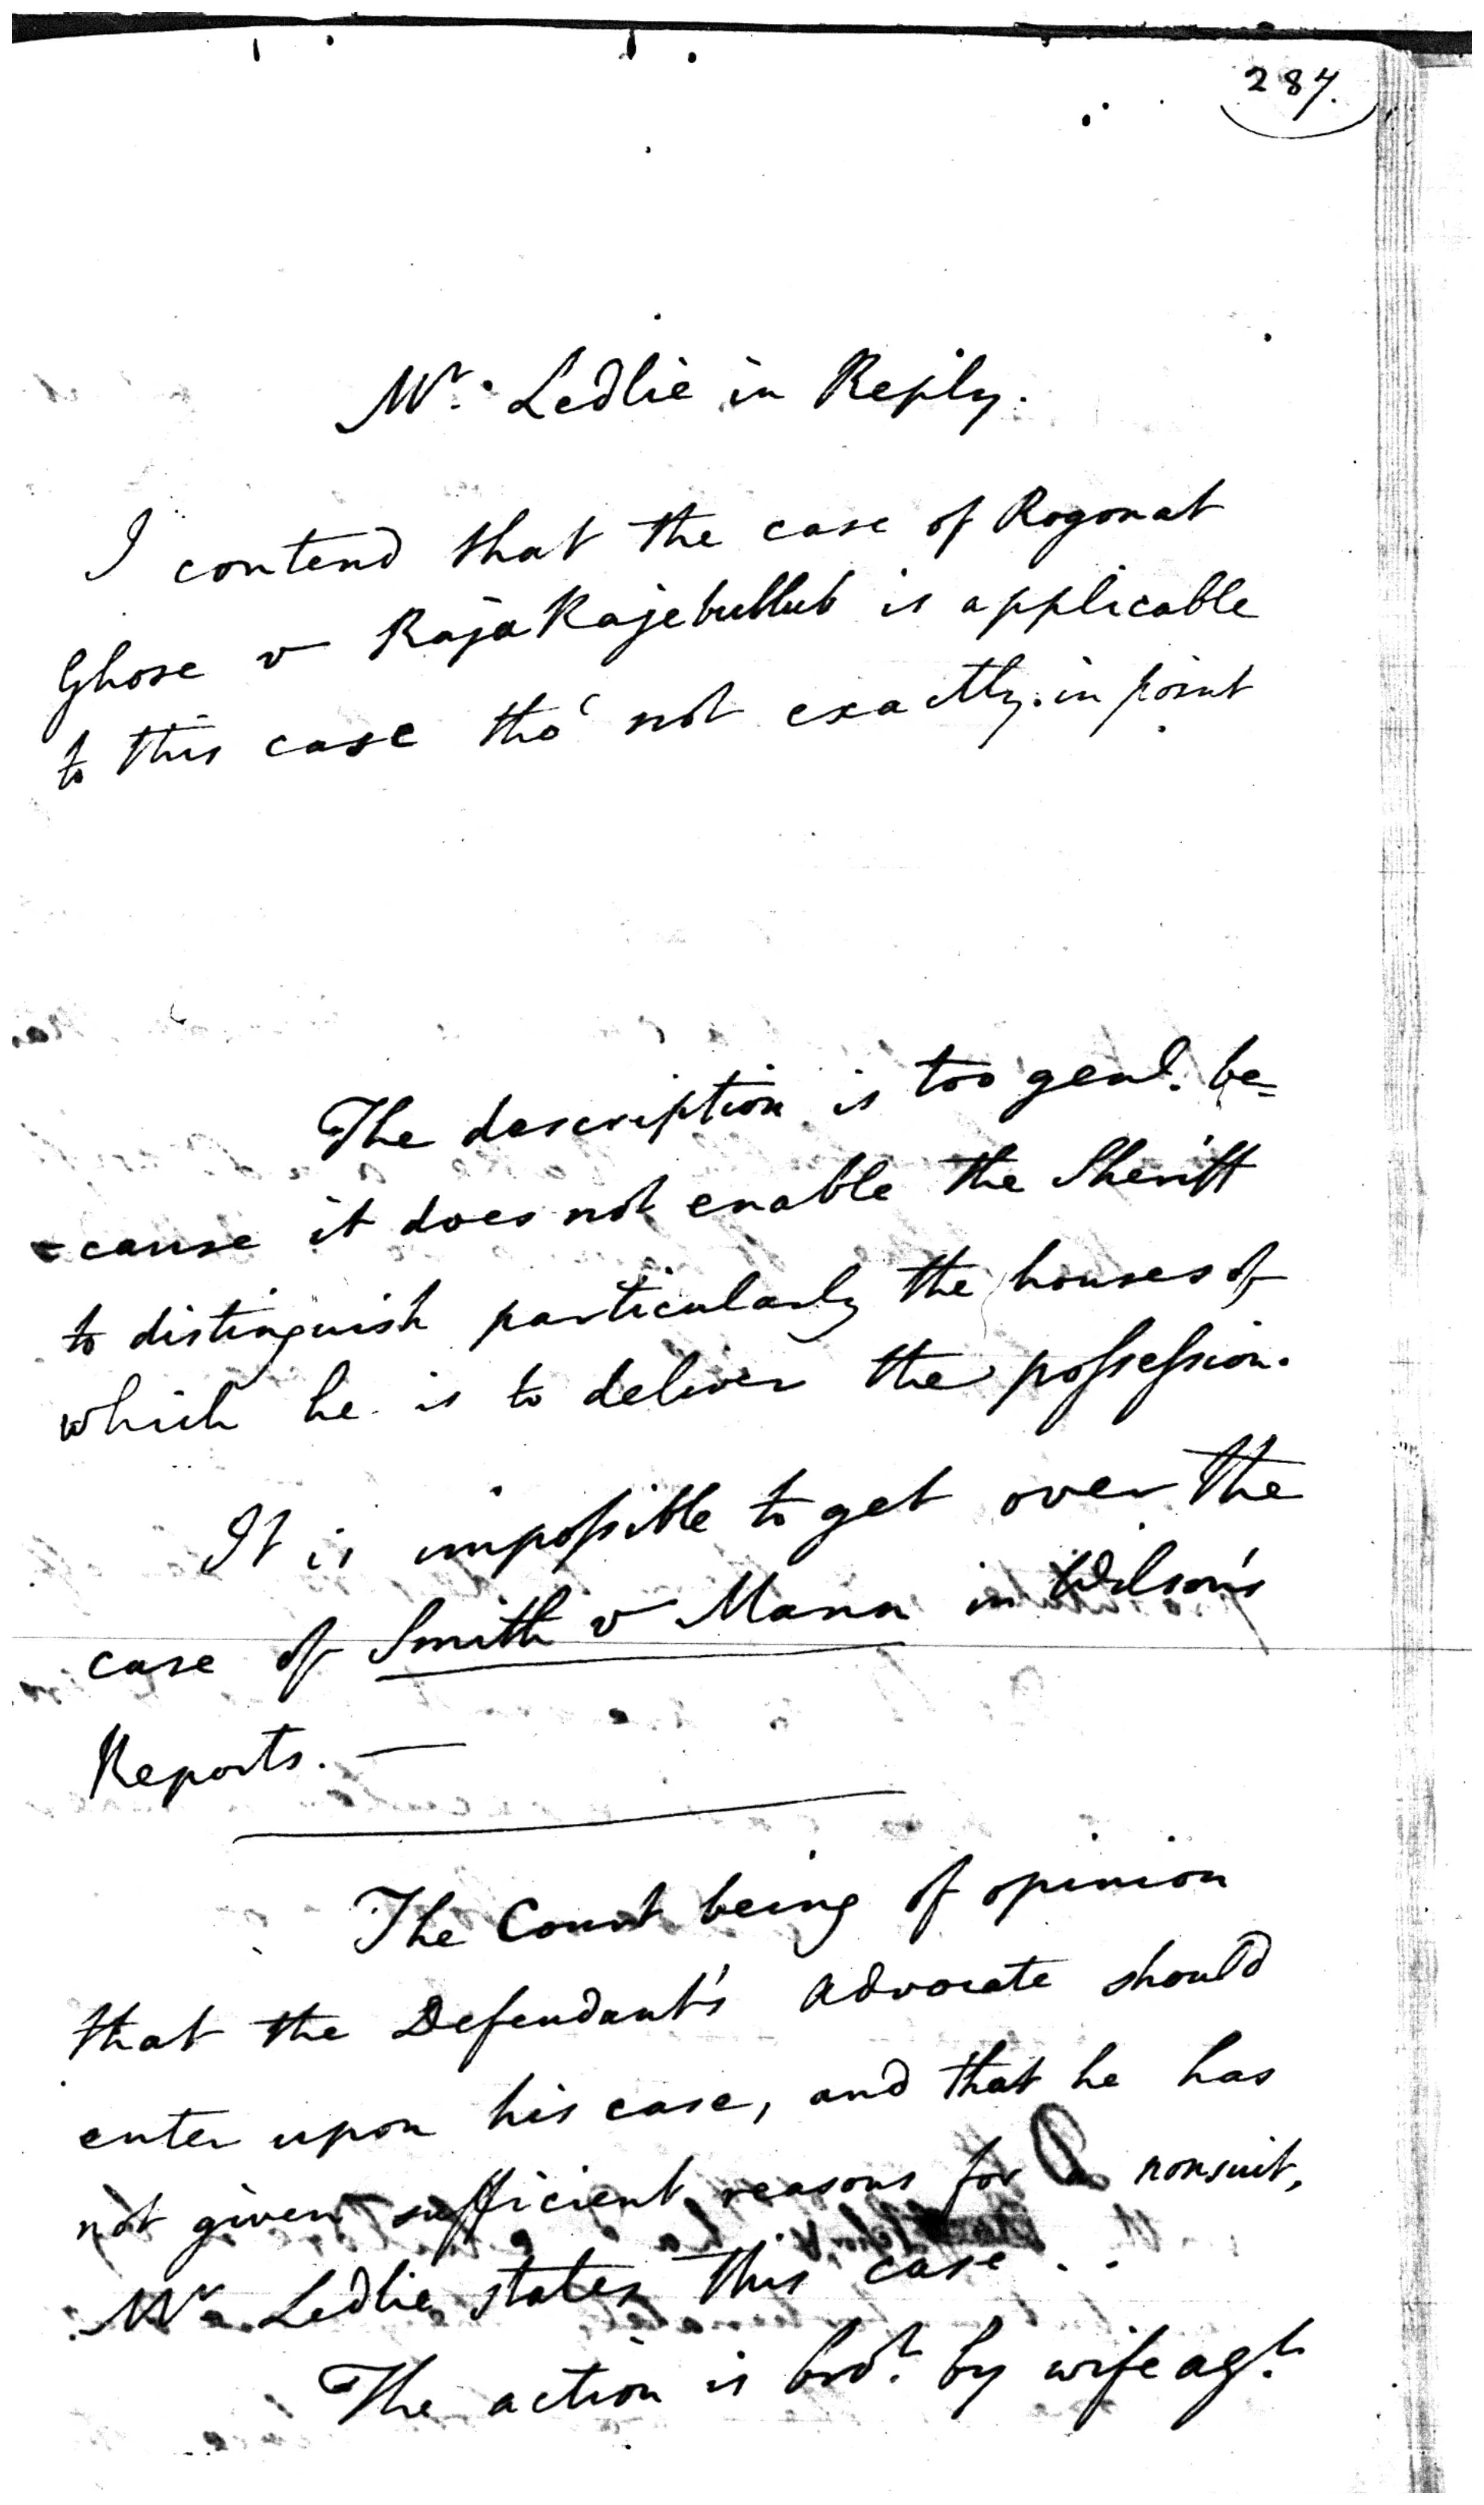 287.
Mr. Ledlie in Reply.
I contend that the case of Rogonat
Ghose v Raja Rajebullub is applicable
to this case tho' not exactly in point
The description is too genl. be=
-cause it does not enable the Sheriff
to distinguish particularly the houses of
which he is to deliver the possession.
It is impossible to get over the
case of Smith v Mann in Wilson's
Reports. —
The Court being of opinion
that the Defendant's advocate should
enter upon his case, and that he has
not given sufficient reasons for a nonsuit,
Mr Ledlie states this case . .
The action is brot. by wife agt.